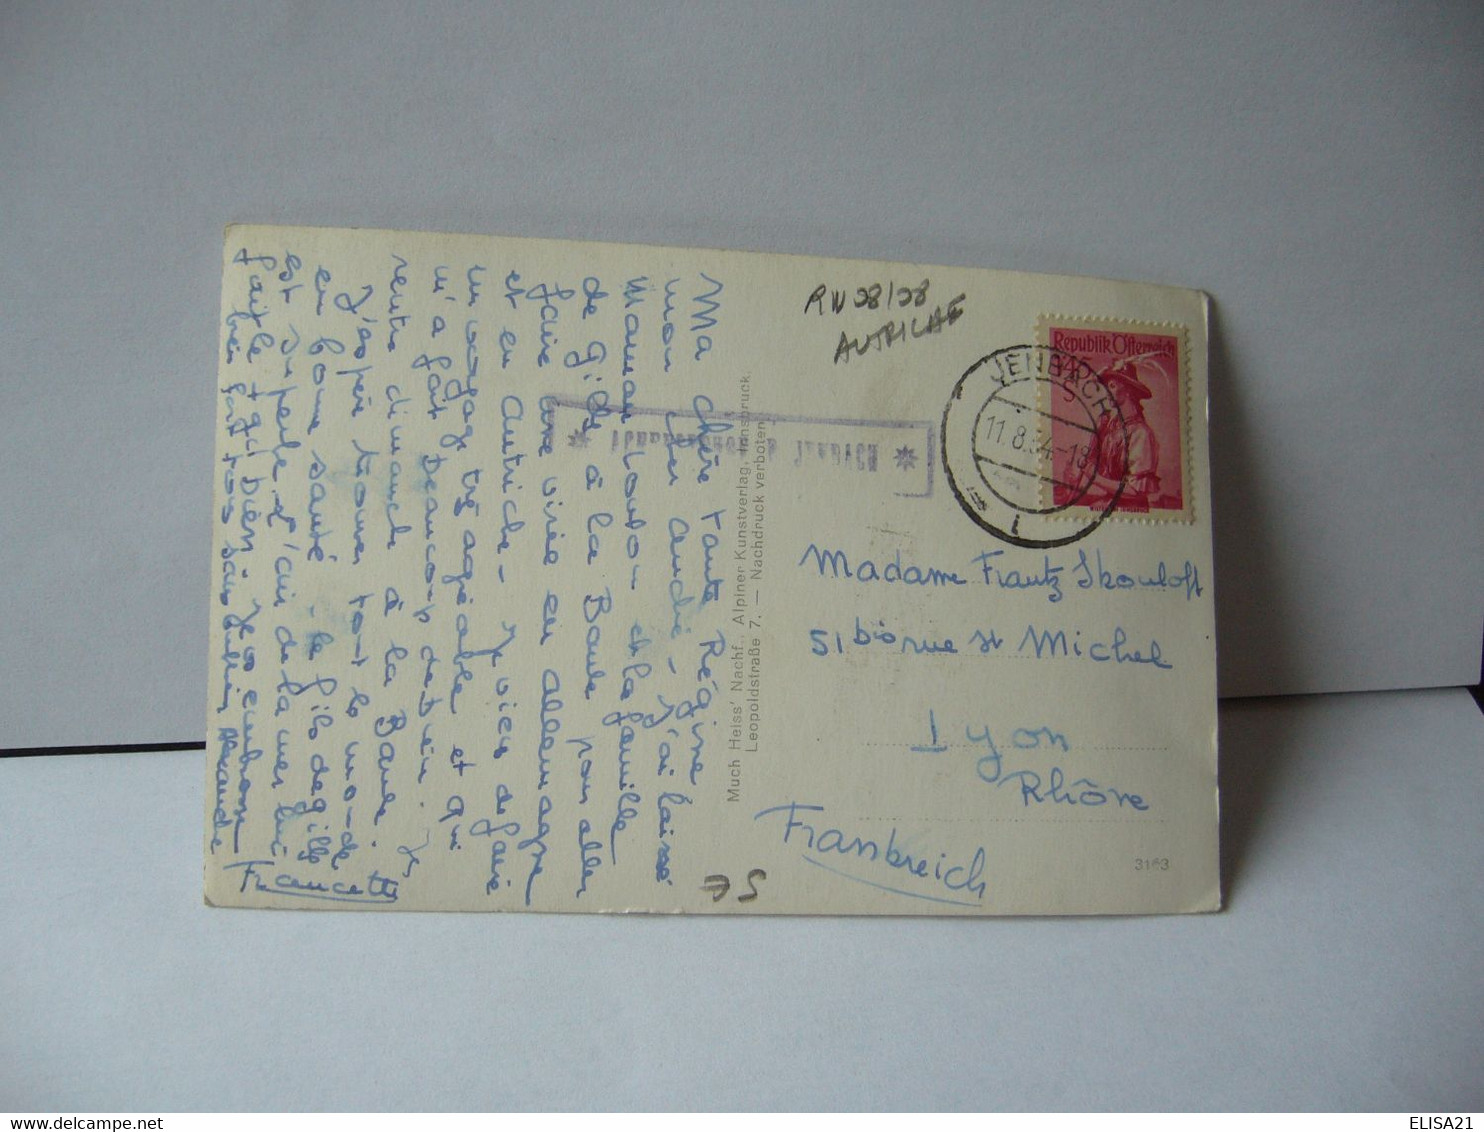 Ma chère tante Régine
mon cher andré - J'ai laissé
Maman loulou - et la famille
de Gilde à la Baule pour aller
faire une virée en allemagne
et en Autriche - Je viens de faire
un voyage très agréable et qui
m'a fait beaucoup de bien. Je
rentre dimanche à la Baule.
J'espère trouver tout le monde
en bonne santé - le fils de gilde
est superbe l'air de la mer lui
faite + qu' bien - Je vous embrasse
bien fort tous sans oublier
Francette
Much Heiss' Nachf., Alpiner Kunstverlag, Innsbruck.
Leopoldstraße 7. — Nachdruck verboten.
RW 08/08
AUTRICHE
Republik Österreich
1.45
S
JENBACH
11.8.54.-18
1
Madame Frantz Skouloft
51 bis rue St Michel
Lyon
Rhône
Frankreich
3163